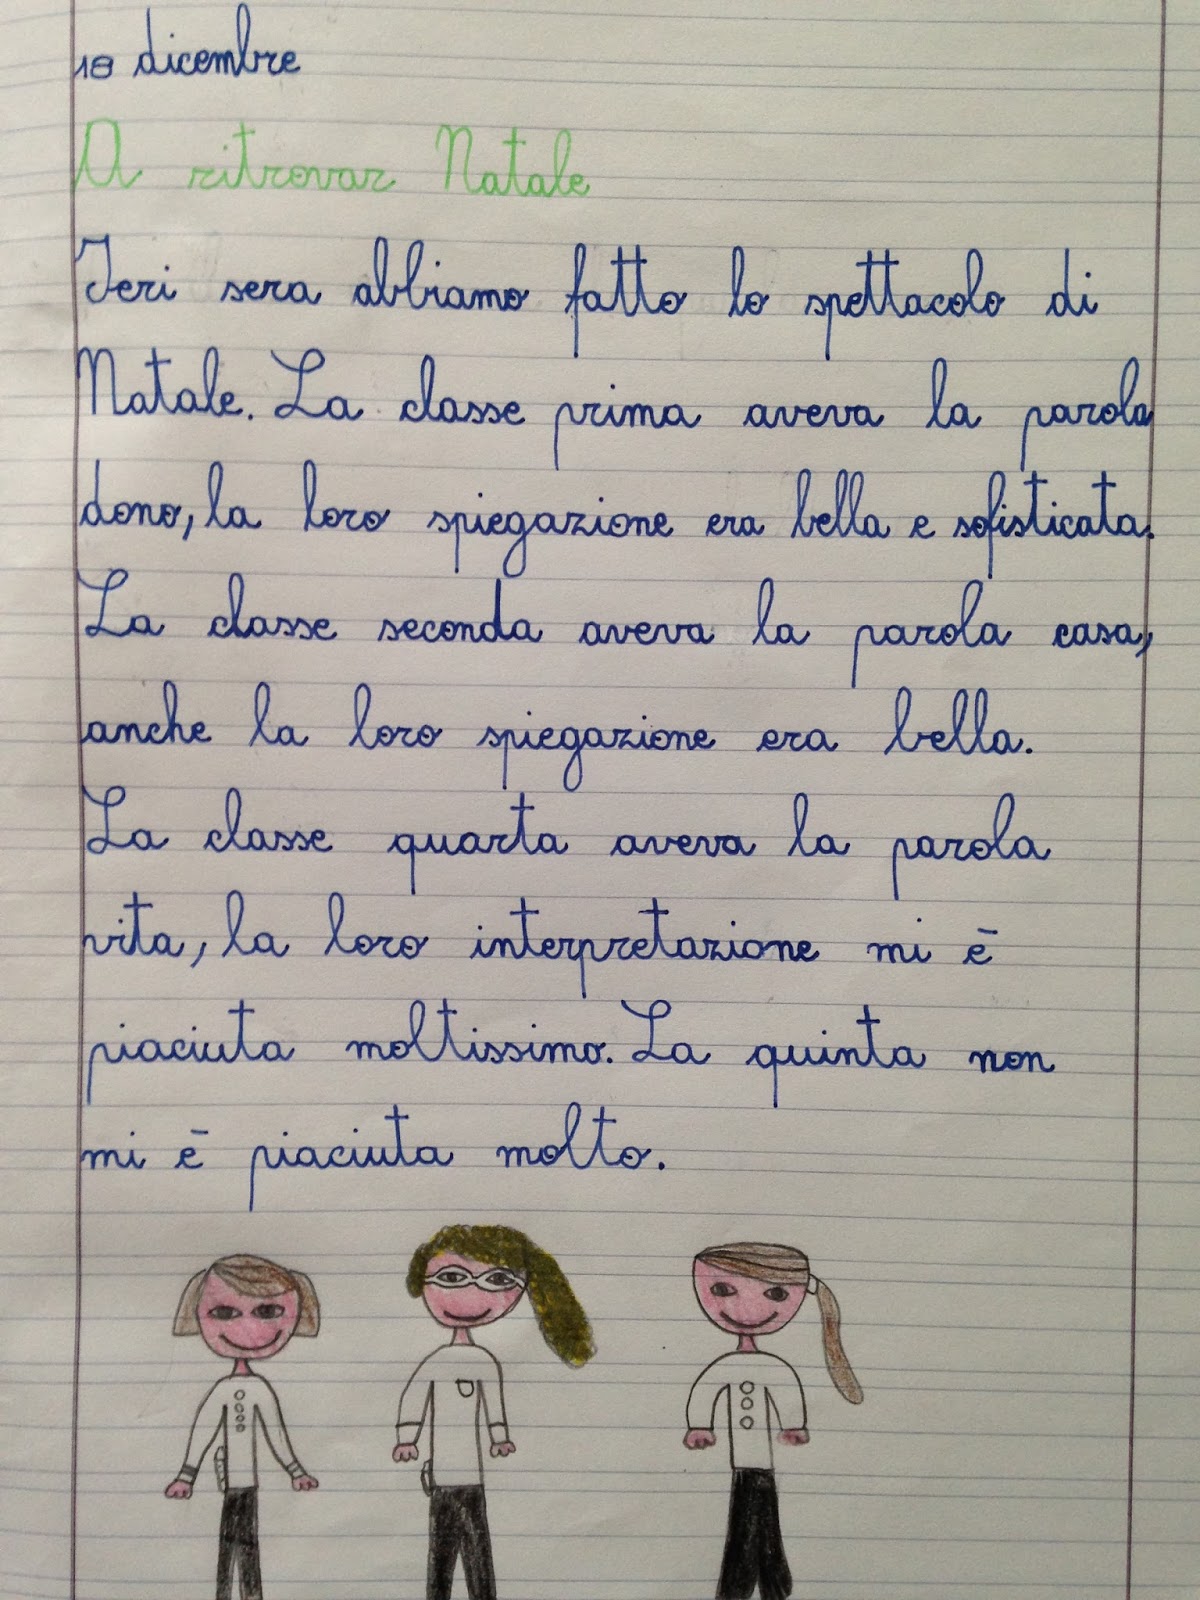 18 dicembre
A ritrovar Natale
Ieri sera abbiamo fatto lo spettacolo di
Natale. La classe prima aveva la parola
dono, la loro spiegazione era bella e sofisticata.
La classe seconda aveva la parola casa,
anche la loro spiegazione era bella.
La classe quarta aveva la parola
vita, la loro interpretazione mi è
piaciuta moltissimo. La quinta non
mi è piaciuta molto.